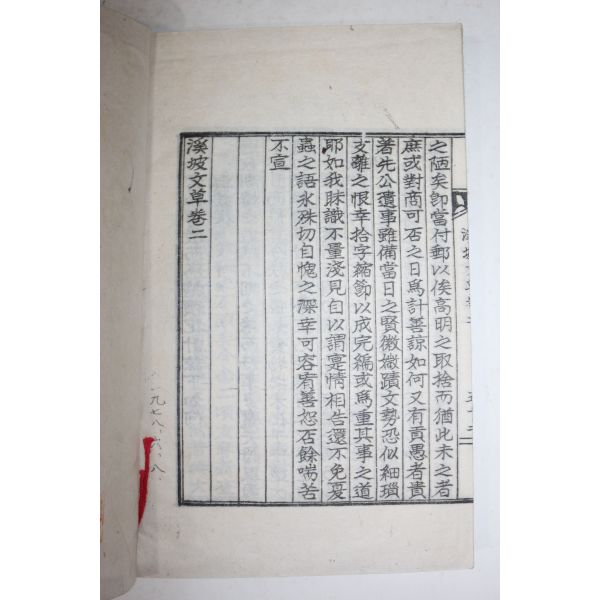 之陋矣卽當付郵以俟高明之取捨而猶此未之者
庶或對商可否之日爲計善諒如何又有責愚者責
著先公遺事雖備當日之賢徽媺蹟文勢恐似細瑣
支離之恨幸拾字縮節以成完編或爲重其事之道
耶如我昧識不量淺見自以謂寔情相告還不免憂
蟲之語氷殊切自愧之深幸可容宥善恕否餘喘苦
不宣
溪坡文草卷二
一九七八、六、八、